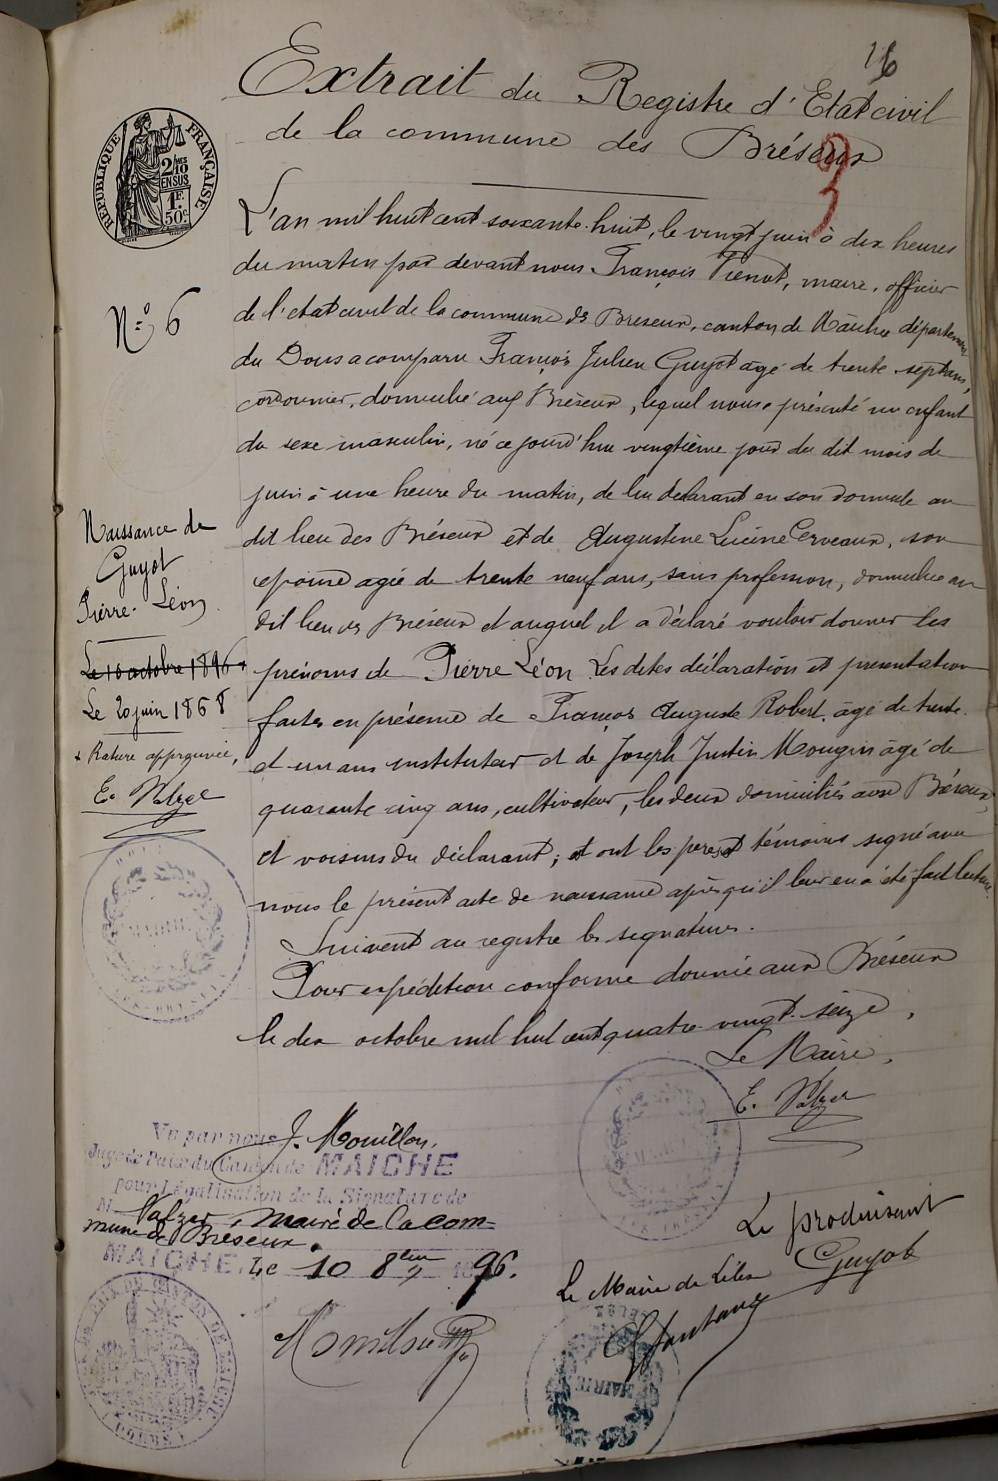 16
Extrait du Registre d'Etat civil
de la commune des Bréseux
3
RÉPUBLIQUE FRANÇAISE
2/10 EN SUS
1F. 50c.
L'an mil huit cent soixante-huit, le vingt juin à dix heures
du matin par devant nous François Vienot, maire, officier
de l'état civil de la commune des Breseux, canton de Maiche département
du Doubs a comparu François Julien Guyot agé de trente-sept ans,
cordonnier, domicilié aux Bréseux, lequel nous a présenté un enfant
du sexe masculin, né ce jourd'hui vingtième jour du dit mois de
juin à une heure du matin, de lui déclarant en son domicile au
dit lieu des Bréseux et de Augustine Lucine Cerveaux, son
epouse agée de trente neuf ans, sans profession, domiciliée au
dit lieu des Bréseux et auquel il a déclaré vouloir donner les
prénoms de Pierre Léon. Les dites déclaration et presentation
faites en présence de François Auguste Robert, âgé de trente
et un ans instituteur et de Joseph Justin Mougin âgé de
quarante cinq ans, cultivateur, les deux domiciliés aux Bréseux,
et voisins du déclarant; et ont les père et témoins signé avec
nous le présent acte de naissance après qu'il leur en a été fait lecture.
Suivent au registre les signatures.
Pour expédition conforme donnée aux Bréseux
le dix octobre mil huit cent quatre-vingt-seize.
Le Maire,
E. Valzer
N° 6
Naissance de
Guyot
Pierre-Léon
Le 10 octobre 1896 +
Le 20 juin 1868
+ Rature approuvée,
E. Valzer
MAIRIE
Vu par nous J. Mouillon,
Juge de Paix du Canton de MAICHE
pour Légalisation de la Signature de
M Valzer, maire de la com=
mune de Bréseux.
MAICHE, Le 10 8bre 1896.
Le produisant
Guyot
Le Maire de
MAIRIE